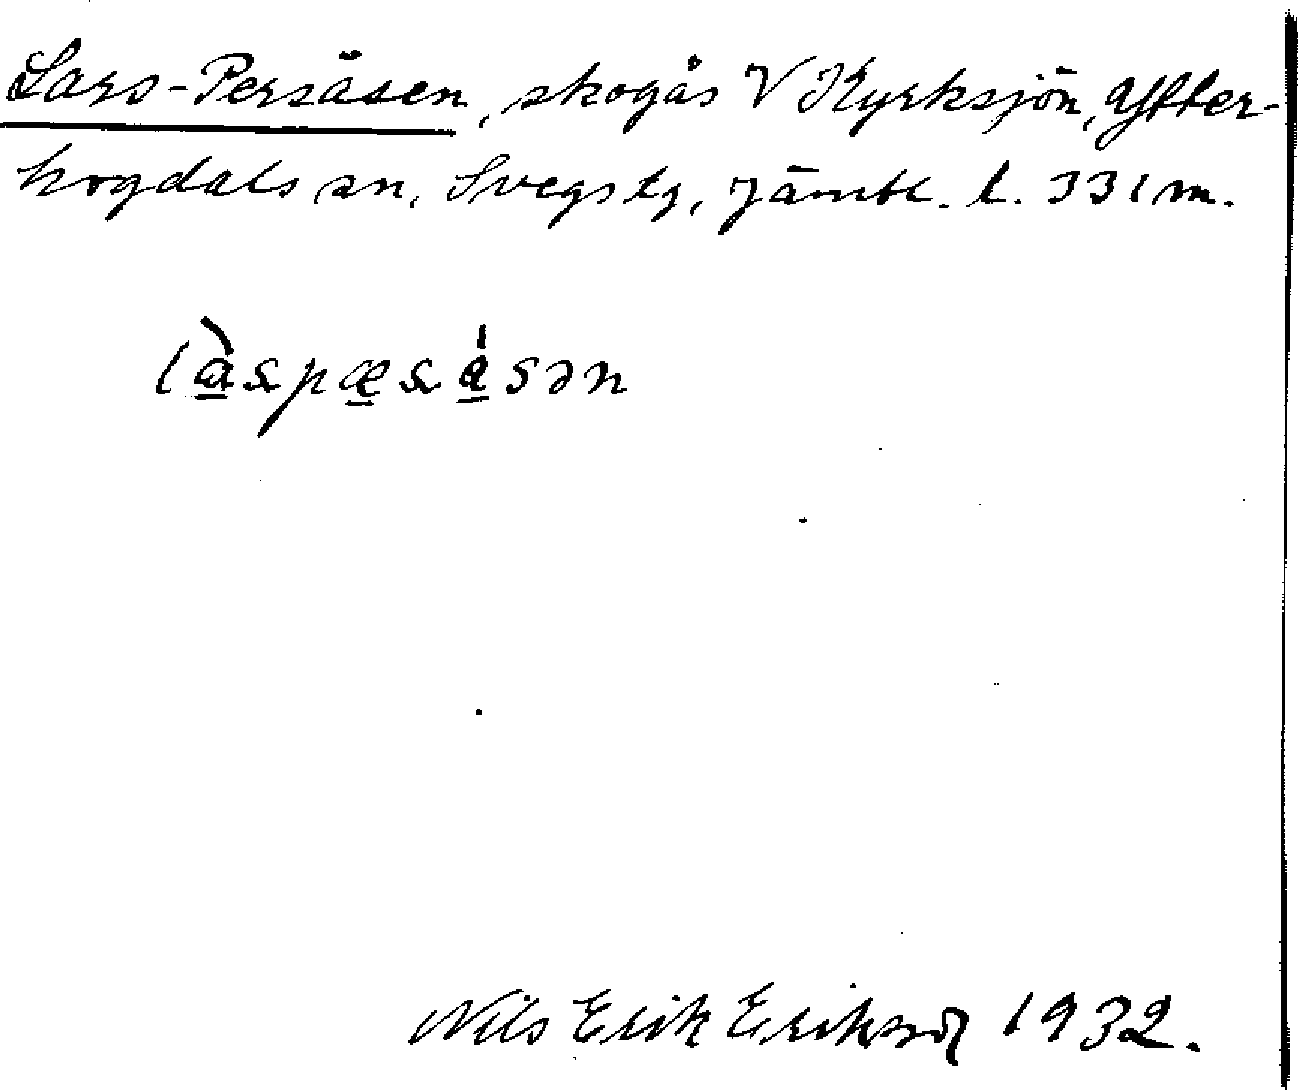 Lars-Persåsen, skogås V Kyrksjön, Ytter-
hogdals sn, Svegs tg, Jämtl. l. 331 m.
Nils Erik Erikson 1932.